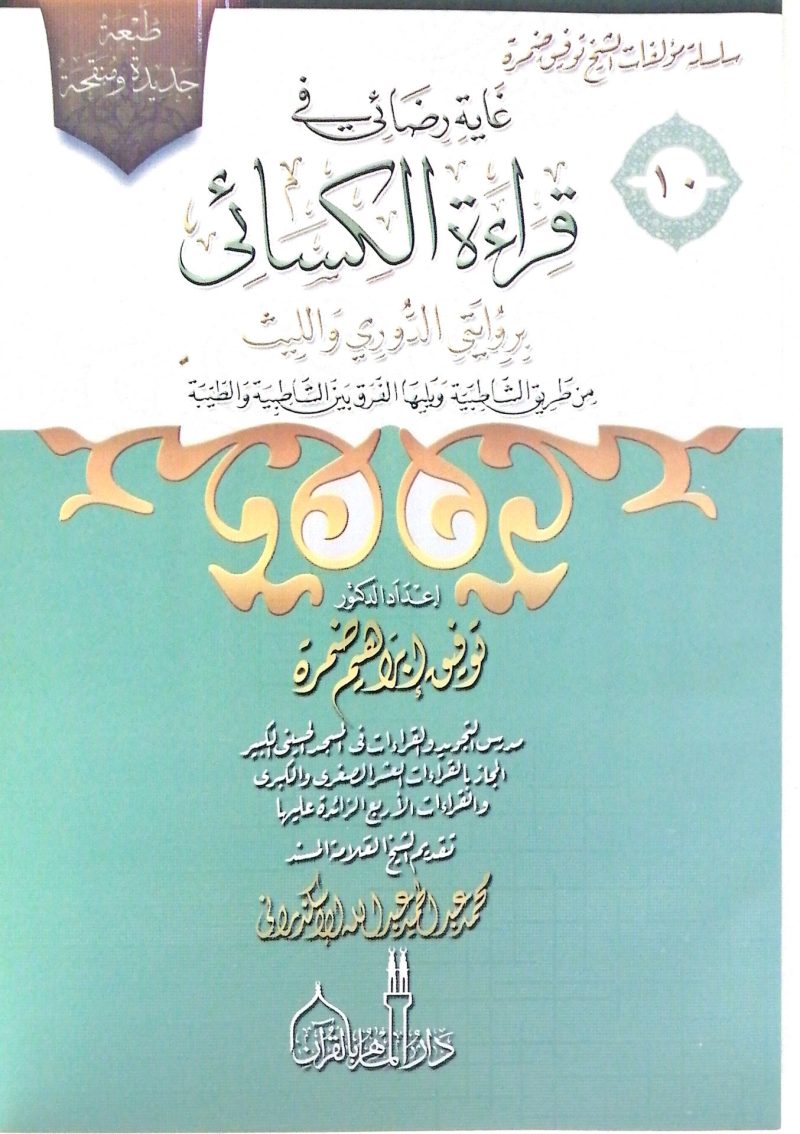 سلسلة مؤلفات الشيخ توفيق ضمرة
طَبعَة
جَديدة ومنقحة
١٠
غَاية رِضَائي في
قِرَاءَة الكِسَائي
بِروايَتي الدُّوري وَالليث
مِن طَريق الشَّاطِبيَّة وَيليها الفَرق بَينَ الشَّاطِبيَّة وَالطَّيبَة
إعْدَاد الدكتور
توفيق إبراهيم ضمرة
مدرس التجويد والقراءات في المسجد الحسيني الكبير
المجاز بالقراءات العشر الصغرى والكبرى
والقراءات الأربع الزائدة عليها
تقديم الشيخ العلامة المسند
محمد عبد الحميد عبد الله الإسكندراني
دَارُ المَاهر بالقُرآن